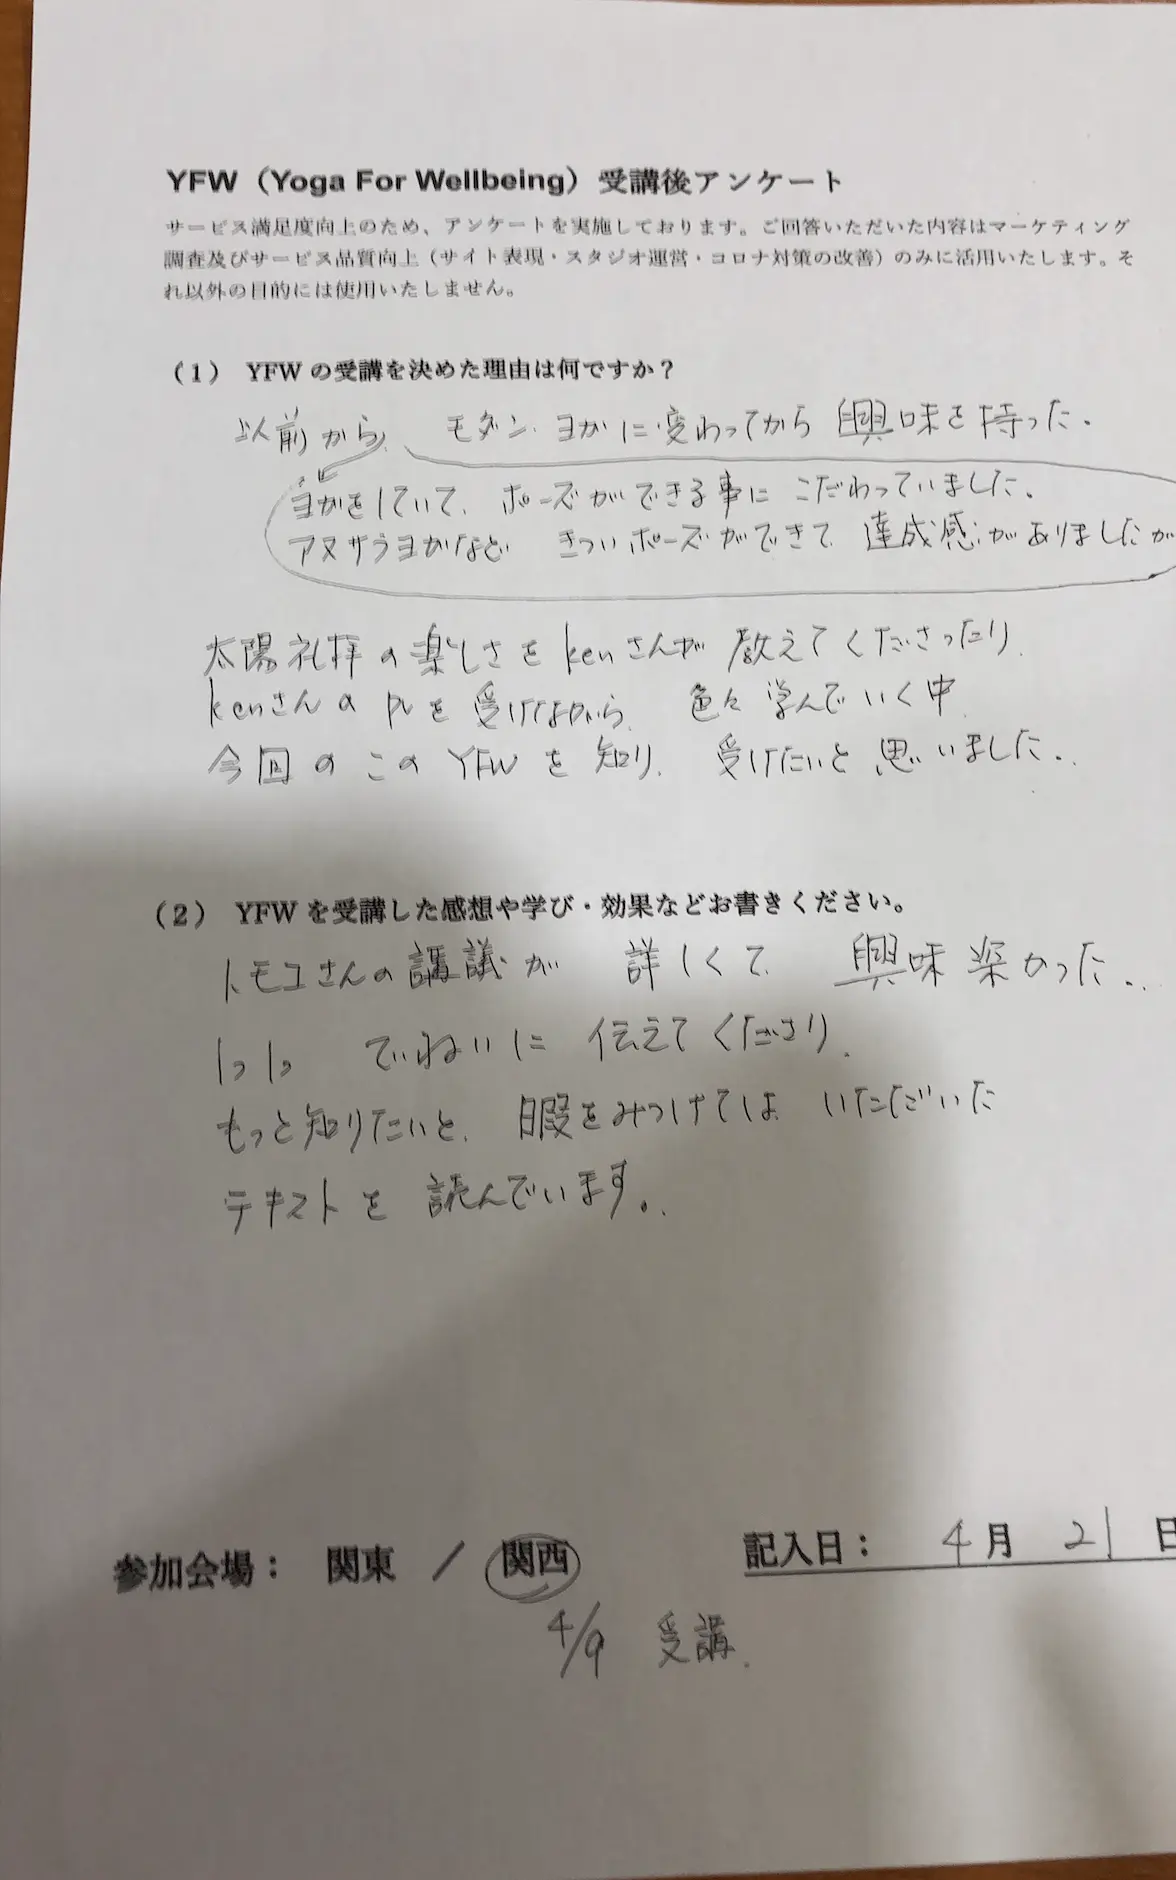 YFW（Yoga For Wellbeing）受講後アンケート
サービス満足度向上のため、アンケートを実施しております。ご回答いただいた内容はマーケティング
調査及びサービス品質向上（サイト表現・スタジオ運営・コロナ対策の改善）のみに活用いたします。そ
れ以外の目的には使用いたしません。
（1） YFWの受講を決めた理由は何ですか？
以前から、モダンヨガに変わってから興味を持った。
ヨガをしていて、ポーズができる事にこだわっていました。
アヌサラヨガなど きついポーズができて、達成感がありましたが
太陽礼拝の楽しさをkenさんが教えてくださったり、
kenさんのpvを受けながら、色々学んでいく中
今回のこのYFWを知り、受けたいと思いました。
（2） YFWを受講した感想や学び・効果などお書きください。
トモコさんの講議が詳しくて、興味深かった。
1つ1つ ていねいに伝えてくださり、
もっと知りたいと、暇をみつけては いただいた
テキストを読んでいます。
参加会場： 関東 ／ 関西
記入日： 4月 21日
4/9 受講.